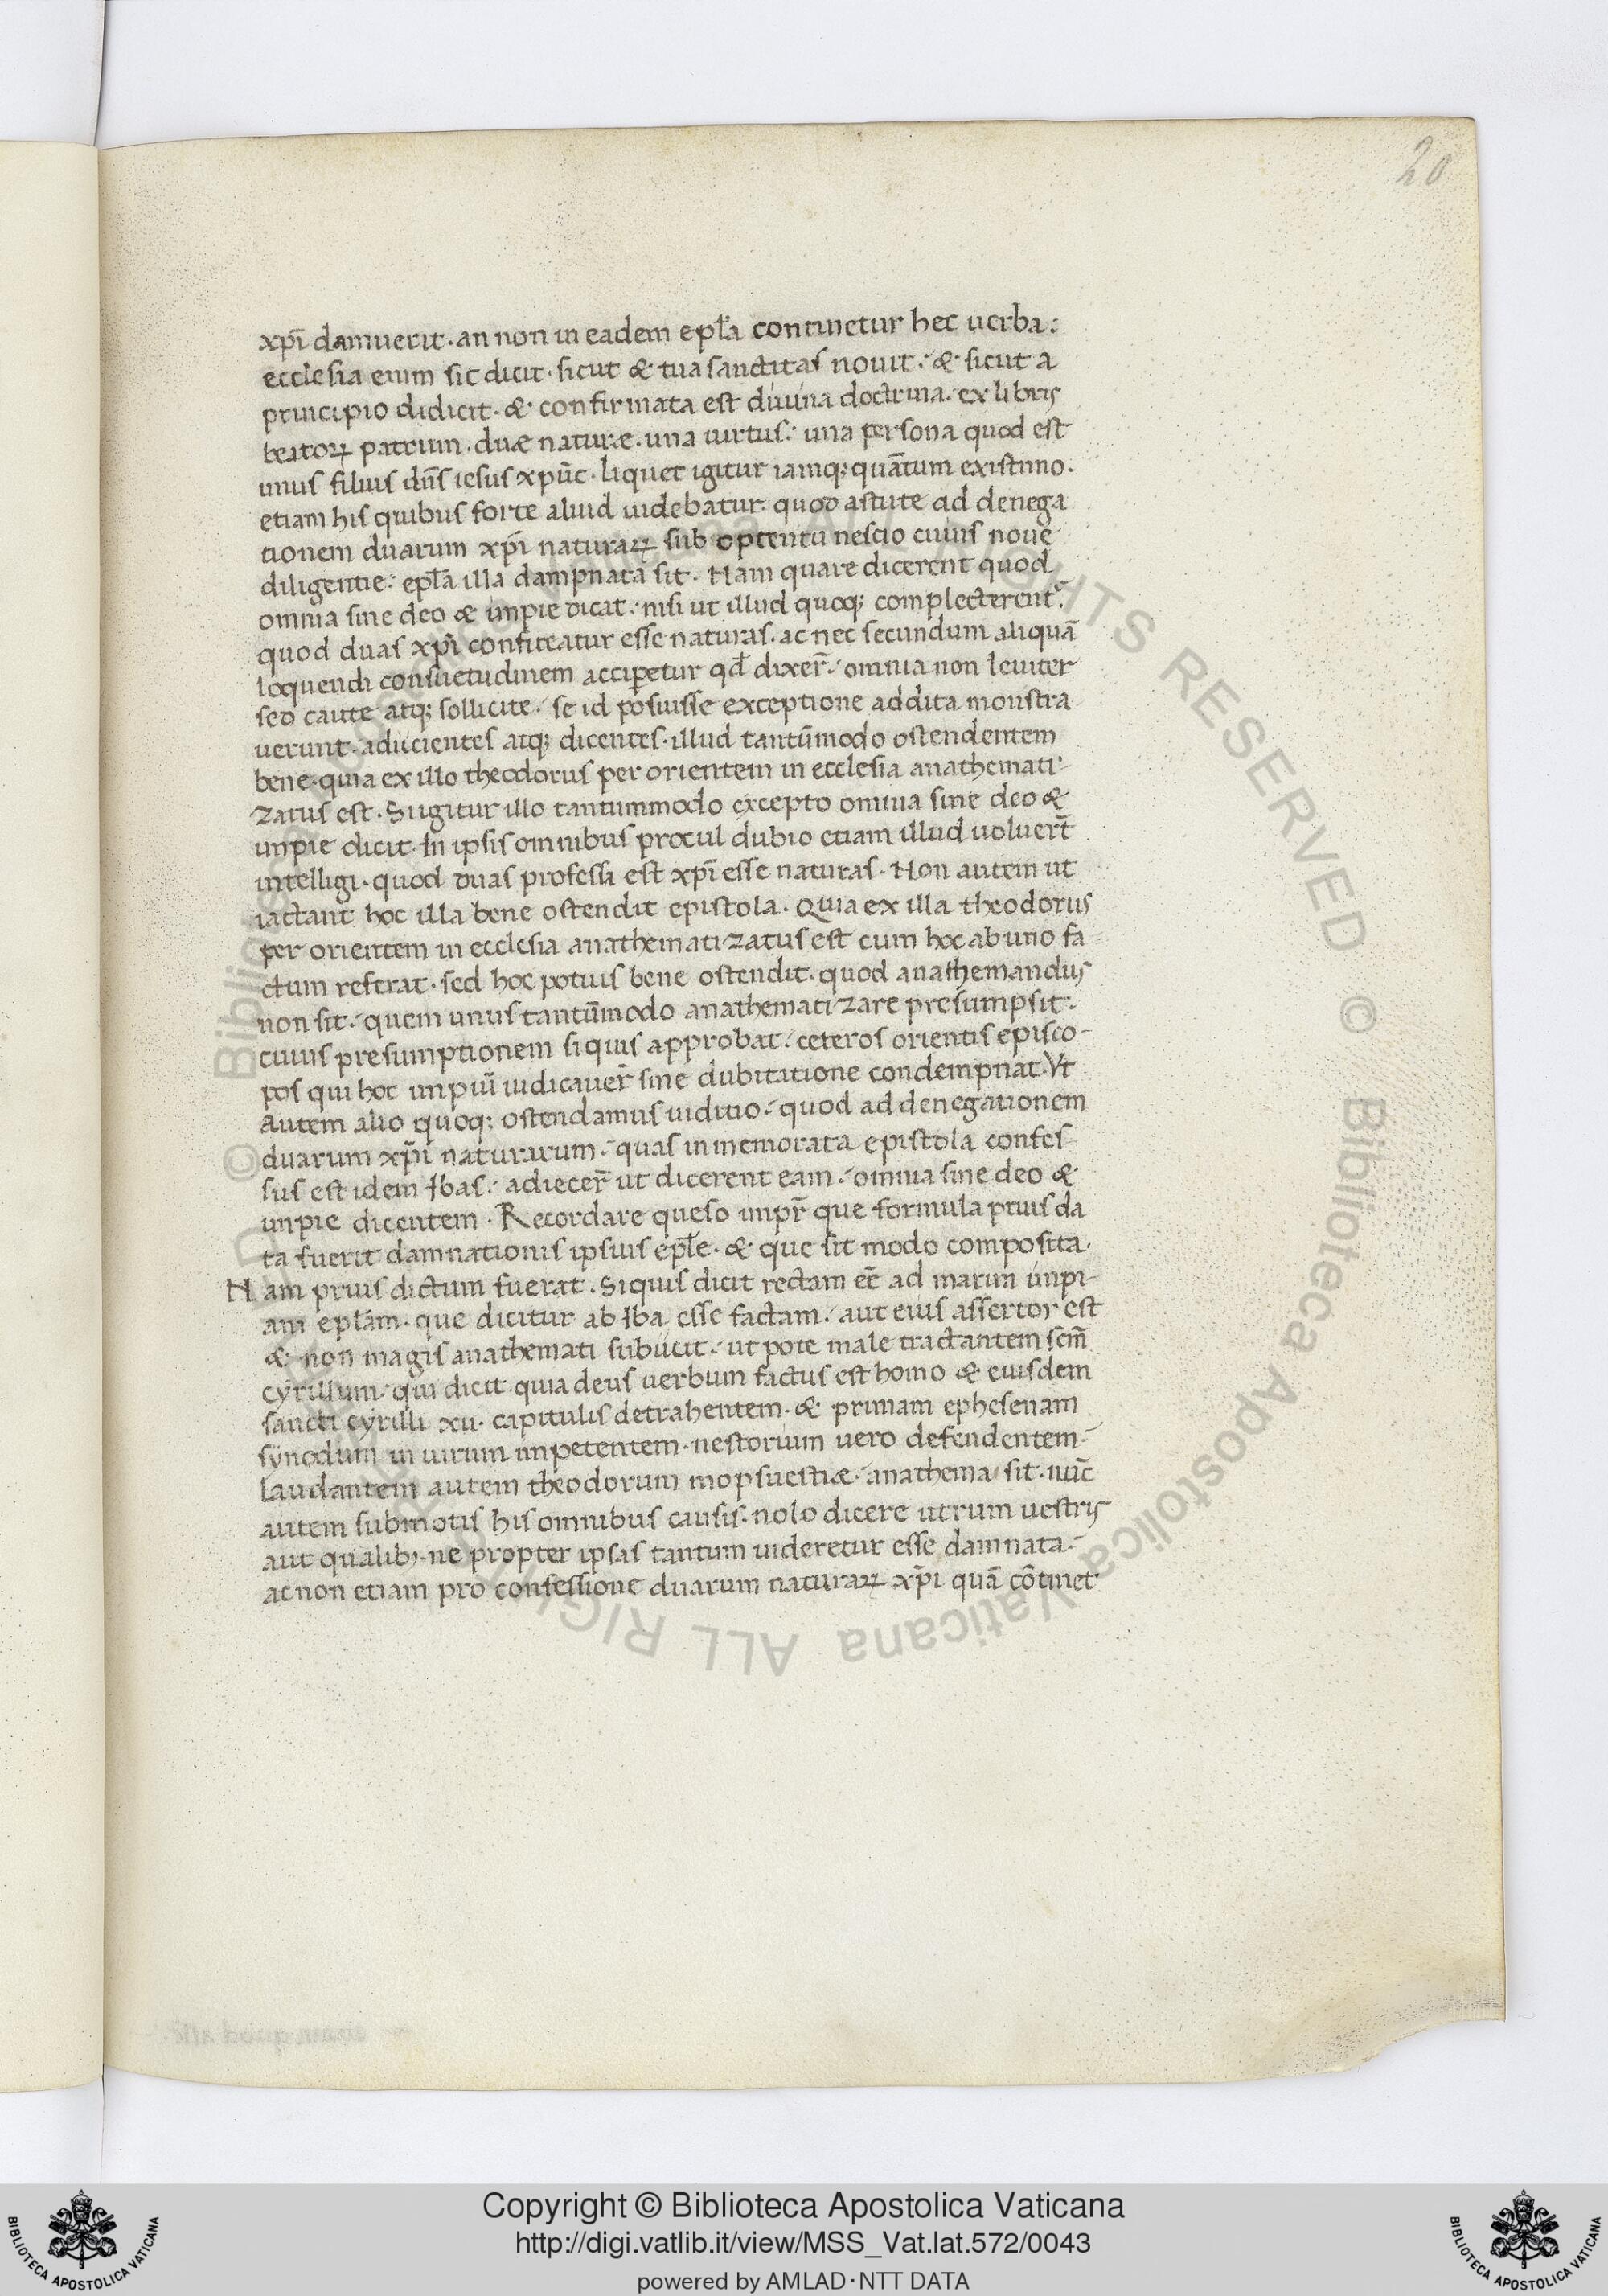 20
xp̄i damnuerit · an non in eadem ep̄la continetur hec uerba :
ecclesia enim sic dicit · sicut & tua sanctitas nouit : & sicut a
principio didicit · & confirmata est diuina doctrina · ex libris
beatoꝝ patrum · duæ naturæ · una uirtus : una persona quod est
unus filius dn̄s iesus xp̄uc · liquet igitur iamq; quātum existimo ·
etiam his quibus forte aliud uidebatur · quod astute ad denega
tionem duarum xp̄i naturaꝝ sub optentu nescio cuius noue
diligentie : ep̄la illa dampnata sit · Nam quare dicerent quod
omnia sine deo & impie dicat : nisi ut illud quoq; complecterent᷑ :
quod duas xp̄i confiteatur esse naturas · ac nec secundum aliquā
loquendi consuetudinem acciꝑetur qd̄ dixer̄ : omnia non leuiter
sed caute atq; sollicite : se id posuisse exceptione addita monstra
uerunt · adiicientes atq; dicentes · illud tantūmodo ostendentem
bene · quia ex illo theodorus per orientem in ecclesia anathemati-
zatus est · Siigitur illo tantummodo excepto omnia sine deo &
impie dicit · In ipsis omnibus procul dubio etiam illud uoluer̄t
intelligi · quod duas professa est xp̄i esse naturas · Non autem ut
iactant hoc illa bene ostendit epistola · Quia ex illa theodorus
per orientem in ecclesia anathematizatus est cum hoc ab uno fa-
ctum referat · sed hoc potius bene ostendit · quod anathemandus
non sit : quem unus tantūmodo anathematizare presumpsit ·
cuius presumptionem siquis approbat : ceteros orientis episco-
pos qui hoc impiū iudicauer̄ sine dubitatione condempnat · Vt
autem alio quoq; ostendamus inditio : quod ad denegationem
duarum xp̄i naturarum : quas in memorata epistola confes-
sus est idem Ibas : adiecer̄ ut dicerent eam : omnia sine deo &
impie dicentem · Recordare queso impr̄ que formula prius da
ta fuerit damnationis ipsius ep̄le · & que sit modo composita ·
Nam prius dictum fuerat · Siquis dicit rectam eē ad marin impi-
am ep̄lam · que dicitur ab Iba esse factam : aut eius assertor est
& non magis anathemati subiicit : ut pote male tractantem scm̄
cyrillum · qui dicit quia deus uerbum factus est homo & eiusdem
sancti cyrilli xii · capitulis detrahentem · & primam ephesenam
synodum in uirum impetentem · nestorium uero defendentem :
laudantem autem theodorum mopsuestiæ : anathema sit · nūc
autem submotis his omnibus causis · nolo dicere utrum uestris
aut qualib; · ne propter ipsas tantum uideretur esse damnata :
ac non etiam pro confessione duarum naturaꝝ xp̄i quā cōtinet
Copyright © Biblioteca Apostolica Vaticana
http://digi.vatlib.it/view/MSS_Vat.lat.572/0043
powered by AMLAD·NTT DATA